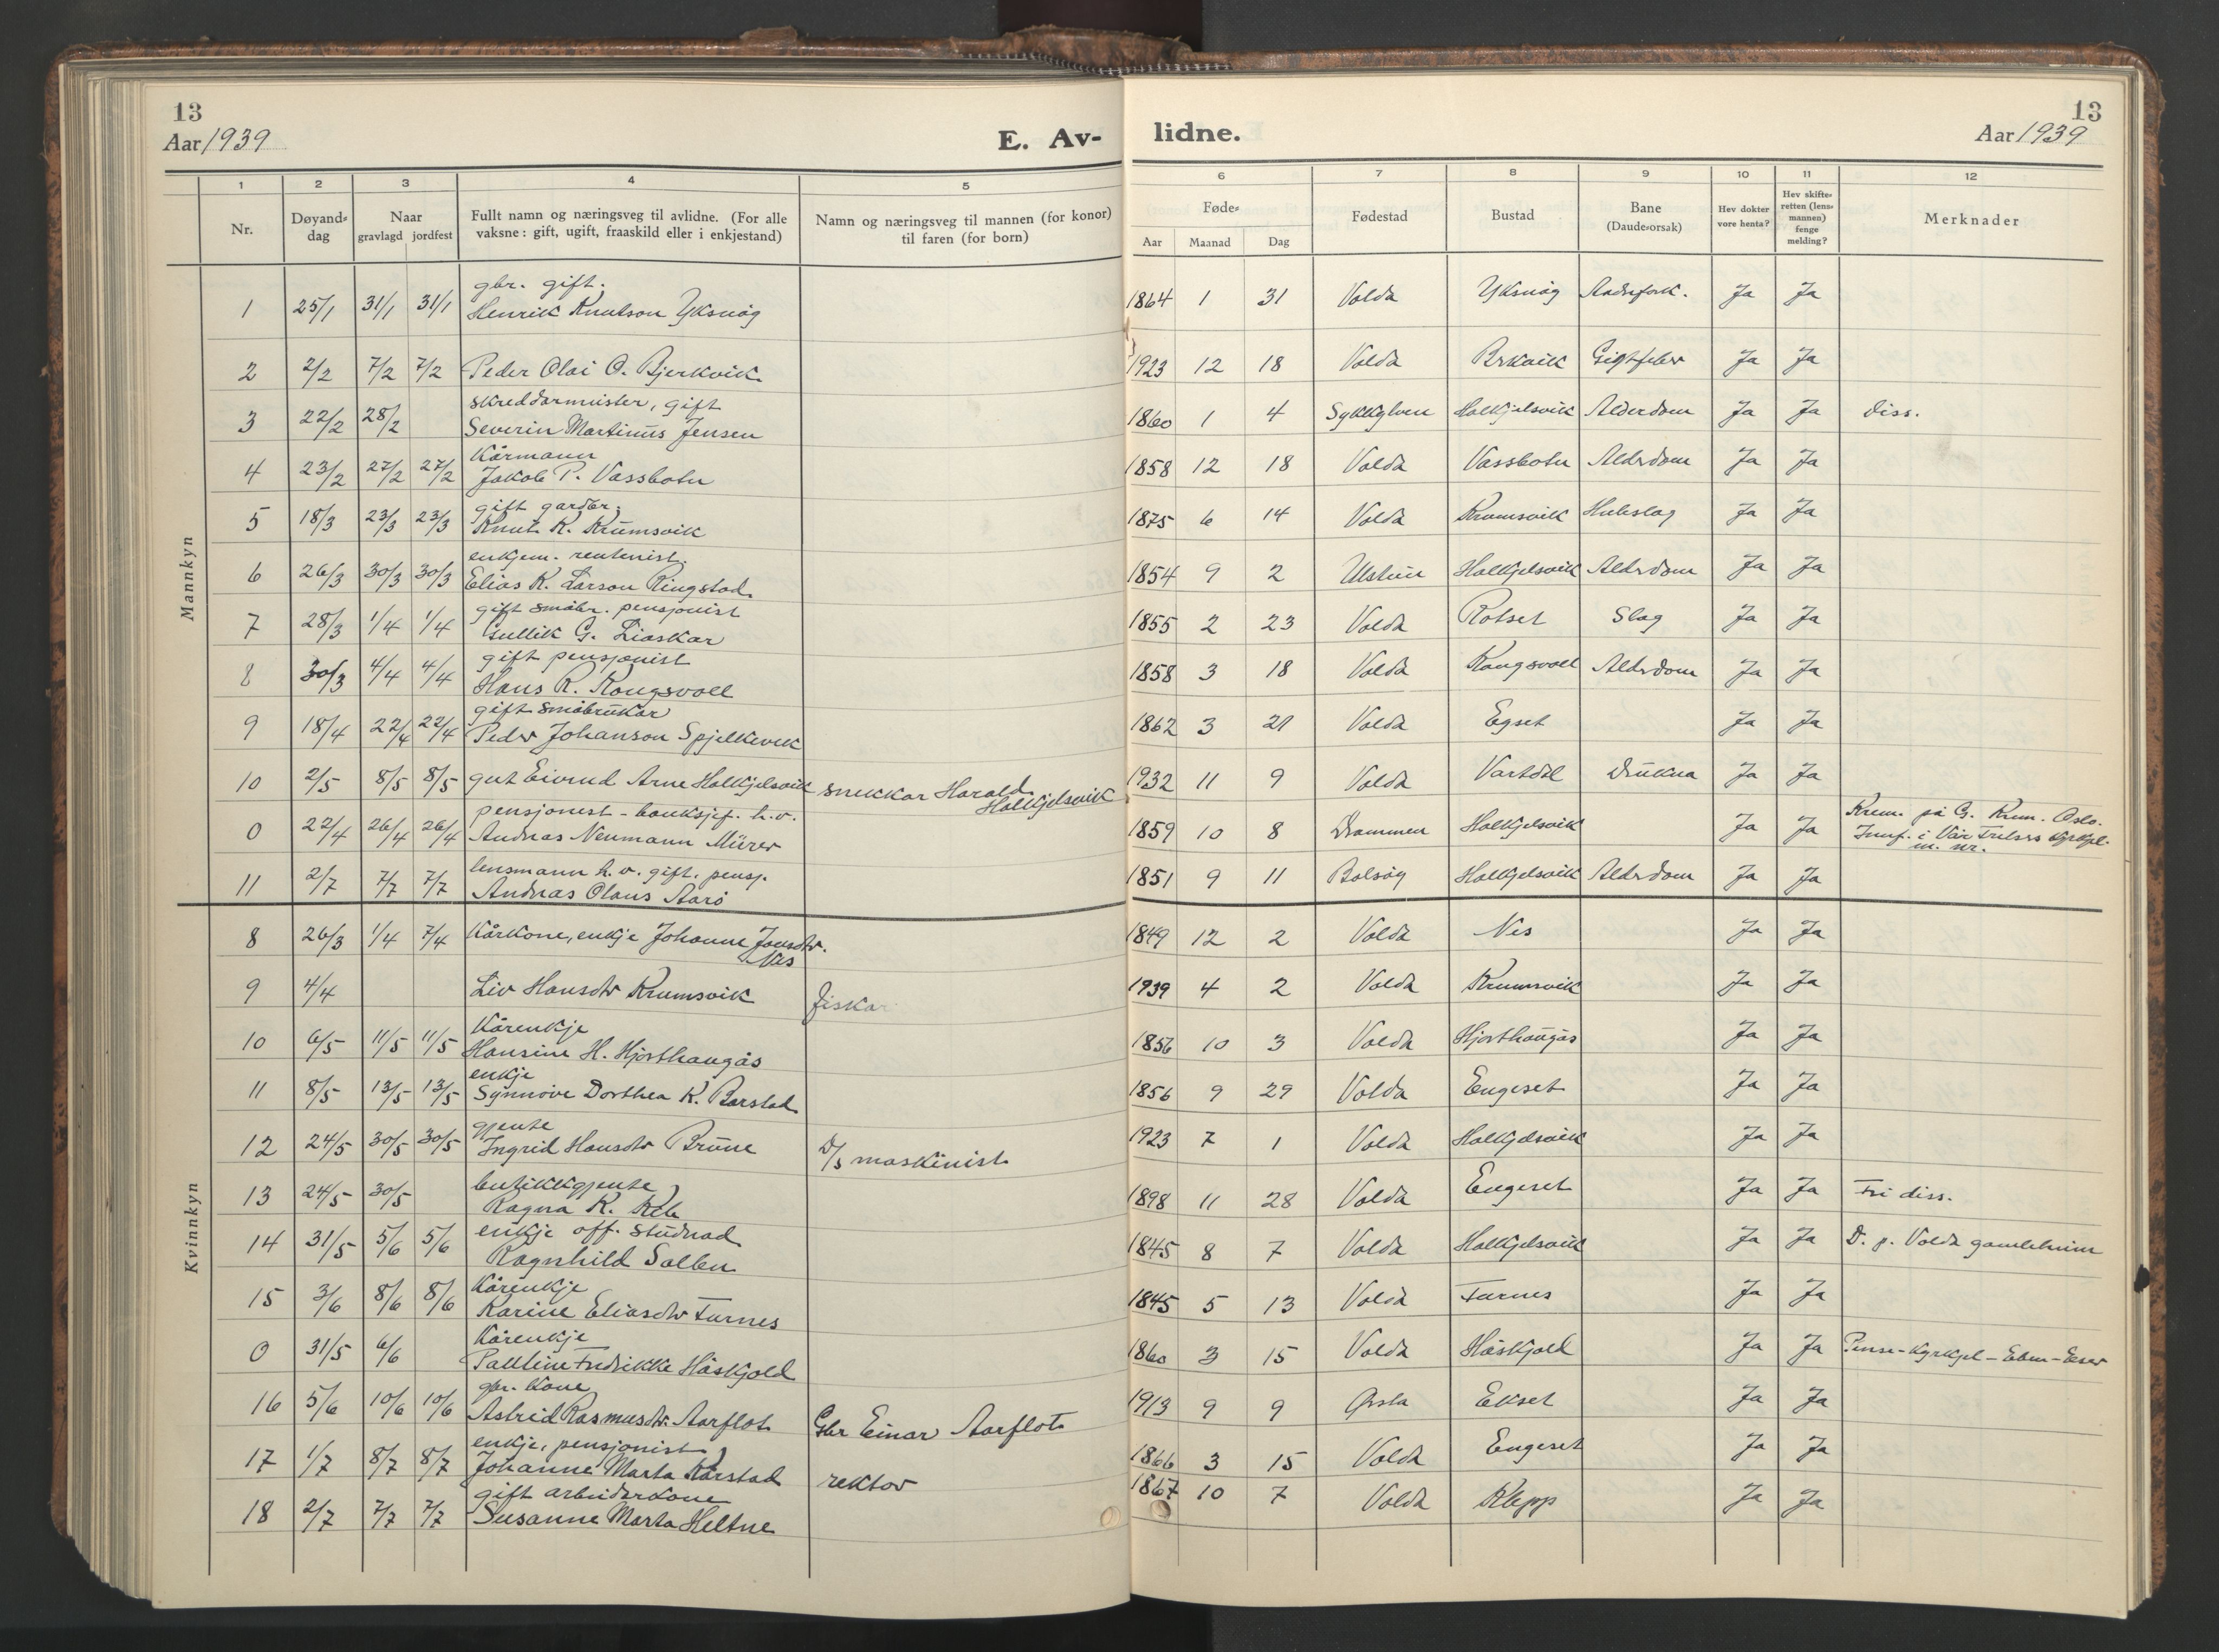 13
Aar 1939
E. Av-
lidne.
13
Aar 1939
1 2 3 4 5 6 7 8 9 10 11 12
Nr. Døyand-dag Naar gravlagd jordfest Fullt namn og næringsveg til avlidne. (For alle vaksne: gift, ugift, fraaskild eller i enkjestand) Namn og næringsveg til mannen (for konor) til faren (for born) Føde- Aar Maanad Dag Fødestad Bustad Bane (Daude-orsak) Hev dokter vore henta? Hev skifte-retten (lens-mannen) fenge melding? Merknader
Mannkyn
gbr. gift.
1 25/1 31/1 31/1 Henrik Knutson Yksnøy 1864 1 31 Volda Yksnøy Ja Ja
2 2/2 7/2 7/2 Peder Olai O. Bjerkvik 1923 12 18 Volda Gigtfeber Ja Ja
skreddarmeister, gift
3 22/2 28/2 Severin Martinus Jensen 1860 1 4 Sykkylven Halkjelsvik Alderdom Ja Ja diss.
Kårmann
4 23/2 27/2 27/2 Jakob P. Vassbotn 1858 12 18 Volda Vassbotn Alderdom Ja Ja
gift gardbr.
5 18/3 23/3 23/3 Knut K. Krumsvik 1875 6 14 Volda Krumsvik Ja Ja
enkjem. rentenist.
6 26/3 30/3 30/3 Elias K. Larson Ringstad 1854 9 2 Ulstein Halkjelsvik Alderdom Ja Ja
gift småbr. pensjonist
7 28/3 1/4 1/4 Gullik G. Liaskar 1855 2 23 Volda Rotset Slag Ja Ja
gift pensjonist
8 30/3 4/4 4/4 Hans R. Kongsvoll 1858 3 18 Volda Kongsvoll Alderdom Ja Ja
gift småbrukar
9 18/4 22/4 22/4 Peder Johanson Spjelkevik 1862 3 21 Volda Egset Ja Ja
10 2/5 8/5 8/5 gut Eivind Arne Halkjelsvik snekkar Harald Halkjelsvik 1932 11 9 Volda Vartdal Drukna Ja Ja
pensjonist - banksjef. h.v.
0 22/4 26/4 26/4 Andreas Neumann Mürer 1859 10 8 Drammen Halkjelsvik Ja Ja Krem. på G. Krem. Oslo.
i Vår Frelsers kyrkgl.
lensmann h.v. gift. pensj.
11 2/7 7/7 7/7 Andreas Olaus Aarø 1851 9 11 Bolsøy Halkjelsvik Alderdom Ja Ja
Kvinnkyn
8 26/3 1/4 7/4 Kårkone, enkje Johanne Jonsdtr. Nes 1849 12 2 Volda Nes Ja Ja
9 4/4 Liv Hansdtr Krumsvik fiskar 1939 4 2 Volda Krumsvik Ja Ja
Kårenkje
10 6/5 11/5 11/5 Hansine H. Hjorthaugås 1856 10 3 Volda Hjorthaugås Ja Ja
enkje
11 8/5 13/5 13/5 Synnøve Dorthea K. Barstad 1856 9 29 Volda Engeset Ja Ja
gjente
12 24/5 30/5 30/5 Ingrid Hansdtr Brune D/S maskinist 1923 7 1 Volda Halkjelsvik Ja Ja
butikkgjente
13 24/5 30/5 Ragna R. 1898 11 28 Volda Engeset Ja Ja Fri diss.
enkje off. studnad
14 31/5 5/6 5/6 Ragnhild Solben 1845 8 7 Volda Halkjelsvik Ja Ja D. p. Volda gamleheim
Kårenkje
15 3/6 8/6 8/6 Karine Eliasdtr Furnes 1845 5 13 Volda Furnes Ja Ja
Kårenkje
0 31/5 6/6 Pauline Fredrikke Håskjold 1860 3 15 Volda Håskjold Ja Ja
gbr. kone
16 5/6 10/6 10/6 Astrid Rasmusdtr. Aarflot Gbr Einar Aarflot 1913 9 9 Ørsta Ekset Ja Ja
enkje, pensjonist
17 1/7 8/7 8/7 Johanne Marta Kårstad rektor 1866 3 15 Volda Engeset Ja Ja
gift arbeiderkone
18 2/7 7/7 7/7 Susanne Marta Heltne 1867 10 7 Volda Klepp Ja Ja